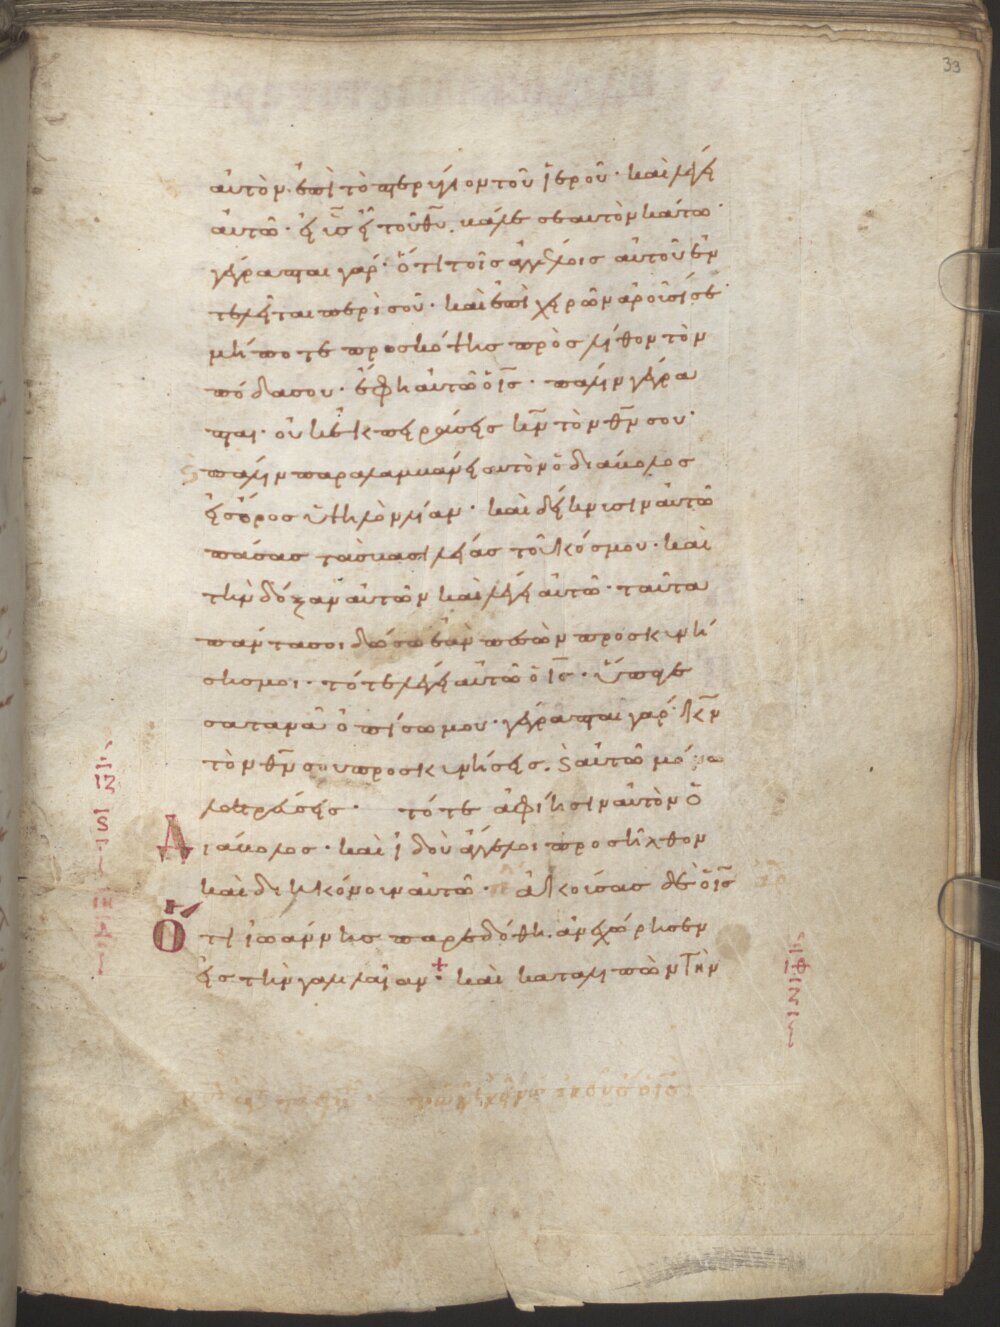 33
αὐτὸν· ἐπὶ τὸ πτερύγιον τοῦ ἱεροῦ· καὶ λέγει
αὐτῶ· εἰ υ̅ς̅ εἶ τοῦ θ̅υ̅. βάλε σεαυτὸν κάτω·
γέγραπται γάρ· ὅτι τοῖς ἀγγέλοις αὐτοῦ ἐν
τελεῖται περὶ σοῦ· καὶ ἐπὶ χειρῶν ἀροῦσί σε·
μήποτε προσκόψης πρὸς λίθον τὸν
πόδα σου· ἔφη αὐτῶ ὁ ι̅ς̅· πάλιν γέγρα
πται· οὐκ ἐκπειράσεις κ̅ν̅ τὸν θ̅ν̅ σου·
πάλιν παραλαμβάνει αυτὸν ὁ διάβολος
εἰς ὄρος ὑψηλὸν λίαν· καὶ δείκνυσιν αὐτῶ
πάσας τὰς βασιλείας τοῦ κόσμου· καὶ
τὴν δόξαν αὐτῶν καὶ λέγει αὐτῶ· ταῦτα
πάντα σοι δώσω ἐὰν πεσὼν προσκυνή
σης μοι· τότε λέγει αὐτῶ ὁ ι̅ς̅· ὕπαγε
σατανᾶ ὀπίσω μου· γέγραπται γάρ· κ̅ν̅
τὸν θ̅ν̅ σου προσκυνήσεις. ϗ αὐτῶ μόνω
λατρεύσεις· τότε ἀφίησιν αὐτὸν ὁ
Διάβολος· καὶ ἰδοὺ ἄγγελοι προσῆλθον
καὶ διηκόνουν αὐτῶ· ἀκούσας δὲ ὁ ι̅ς̅
Ὅτι ἰωάννης παρεδόθη. ἀνεχώρησεν
εἰς τὴν γαλιλαίαν· + καὶ καταλιπὼν τὴν